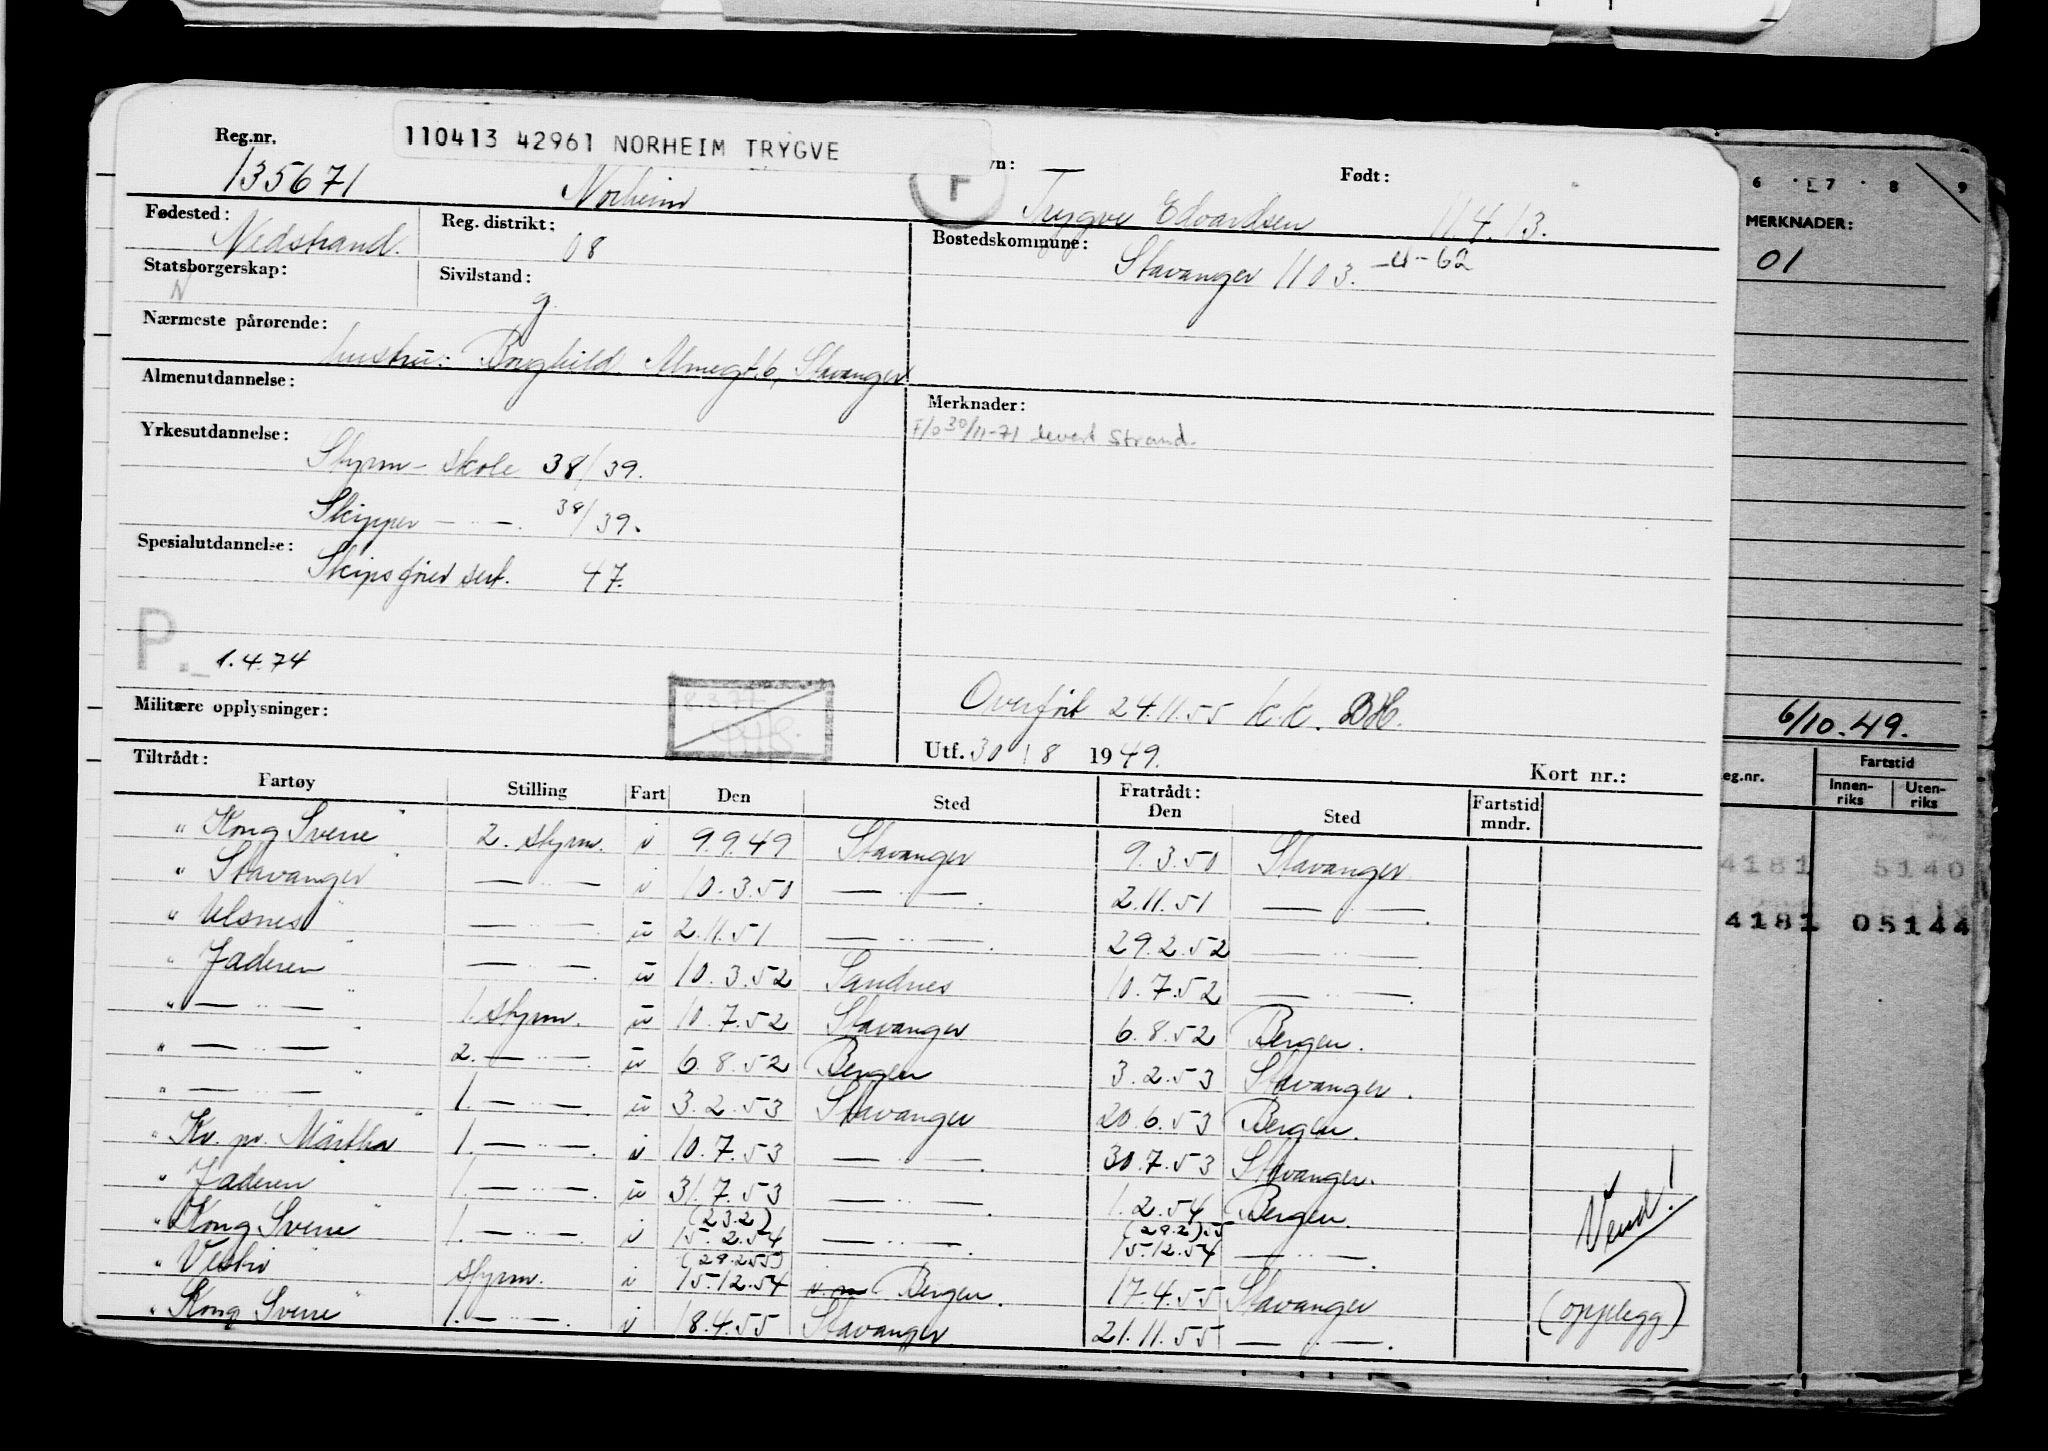 Reg.nr. 110413 42961 NORHEIM TRYGVE Født:
135671 Norheim Trygve Edvardsen 11.4.13.
Fødested: Nedstrand. Reg. distrikt: 08 Bostedskommune: Stavanger 1103. -"-62
Statsborgerskap: N Sivilstand: g.
Nærmeste pårørende:
hustru: Borghild. Stavanger
Almenutdannelse: Merknader:
F/o 30/11-71 levert Strand.
Yrkesutdannelse:
Styrm-skole 38/39.
Skipper —"—. 38/39.
Spesialutdannelse:
Skipsfører sert. 47.
P.
1.4.74
8.3.72
Overført 24.11.55 K.K. BH.
Militære opplysninger:
Utf. 30 / 8 1949. Kort nr.:
Tiltrådt: Fratrådt:
Fartøy Stilling Fart Den Sted Den Sted Fartstid mndr.
" Kong Sverre " 2. styrm. i 9.9.49 Stavanger 9.3.50 Stavanger
" Stavanger " —"— i 10.3.50 —"—. 2.11.51 —"—.
" Ulsnes " —"— u 2.11.51 —"—. 29.2.52 —"—
" Jæderen " —"—. u 10.3.52 Sandnes 10.7.52 —"—.
" —"— " 1. styrm. u 10.7.52 Stavanger 6.8.52 Bergen.
" —"— " 2. —"— u 6.8.52 Bergen 3.2.53 Stavanger.
" —"— " 1. —"—. u 3.2.53 Stavanger 20.6.53 Bergen.
" Kr. pr. Märtha " 1. —"—. i 10.7.53 —"—. 30.7.53 Stavanger.
" Jæderen " 1. —"—. u 31.7.53 —"—. 1.2.54 Bergen.
" Kong Sverre " 1. —"—. i (23.2) 15.2.54 —"—. (28.2).55 15.12.54 —"—.
" Vestri " styrm. i (28.2.55) 15.12.54 Bergen. 17.4.55 Stavanger (opplegg)
" Kong Sverre " 1. —"—. i 18.4.55 Stavanger 21.11.55 —"—.
Vend!
6 7 8 9
MERKNADER:
01
6/10.49.
eg.nr. Fartstid
Innen-riks Uten-riks
4181 5140
4181 05144